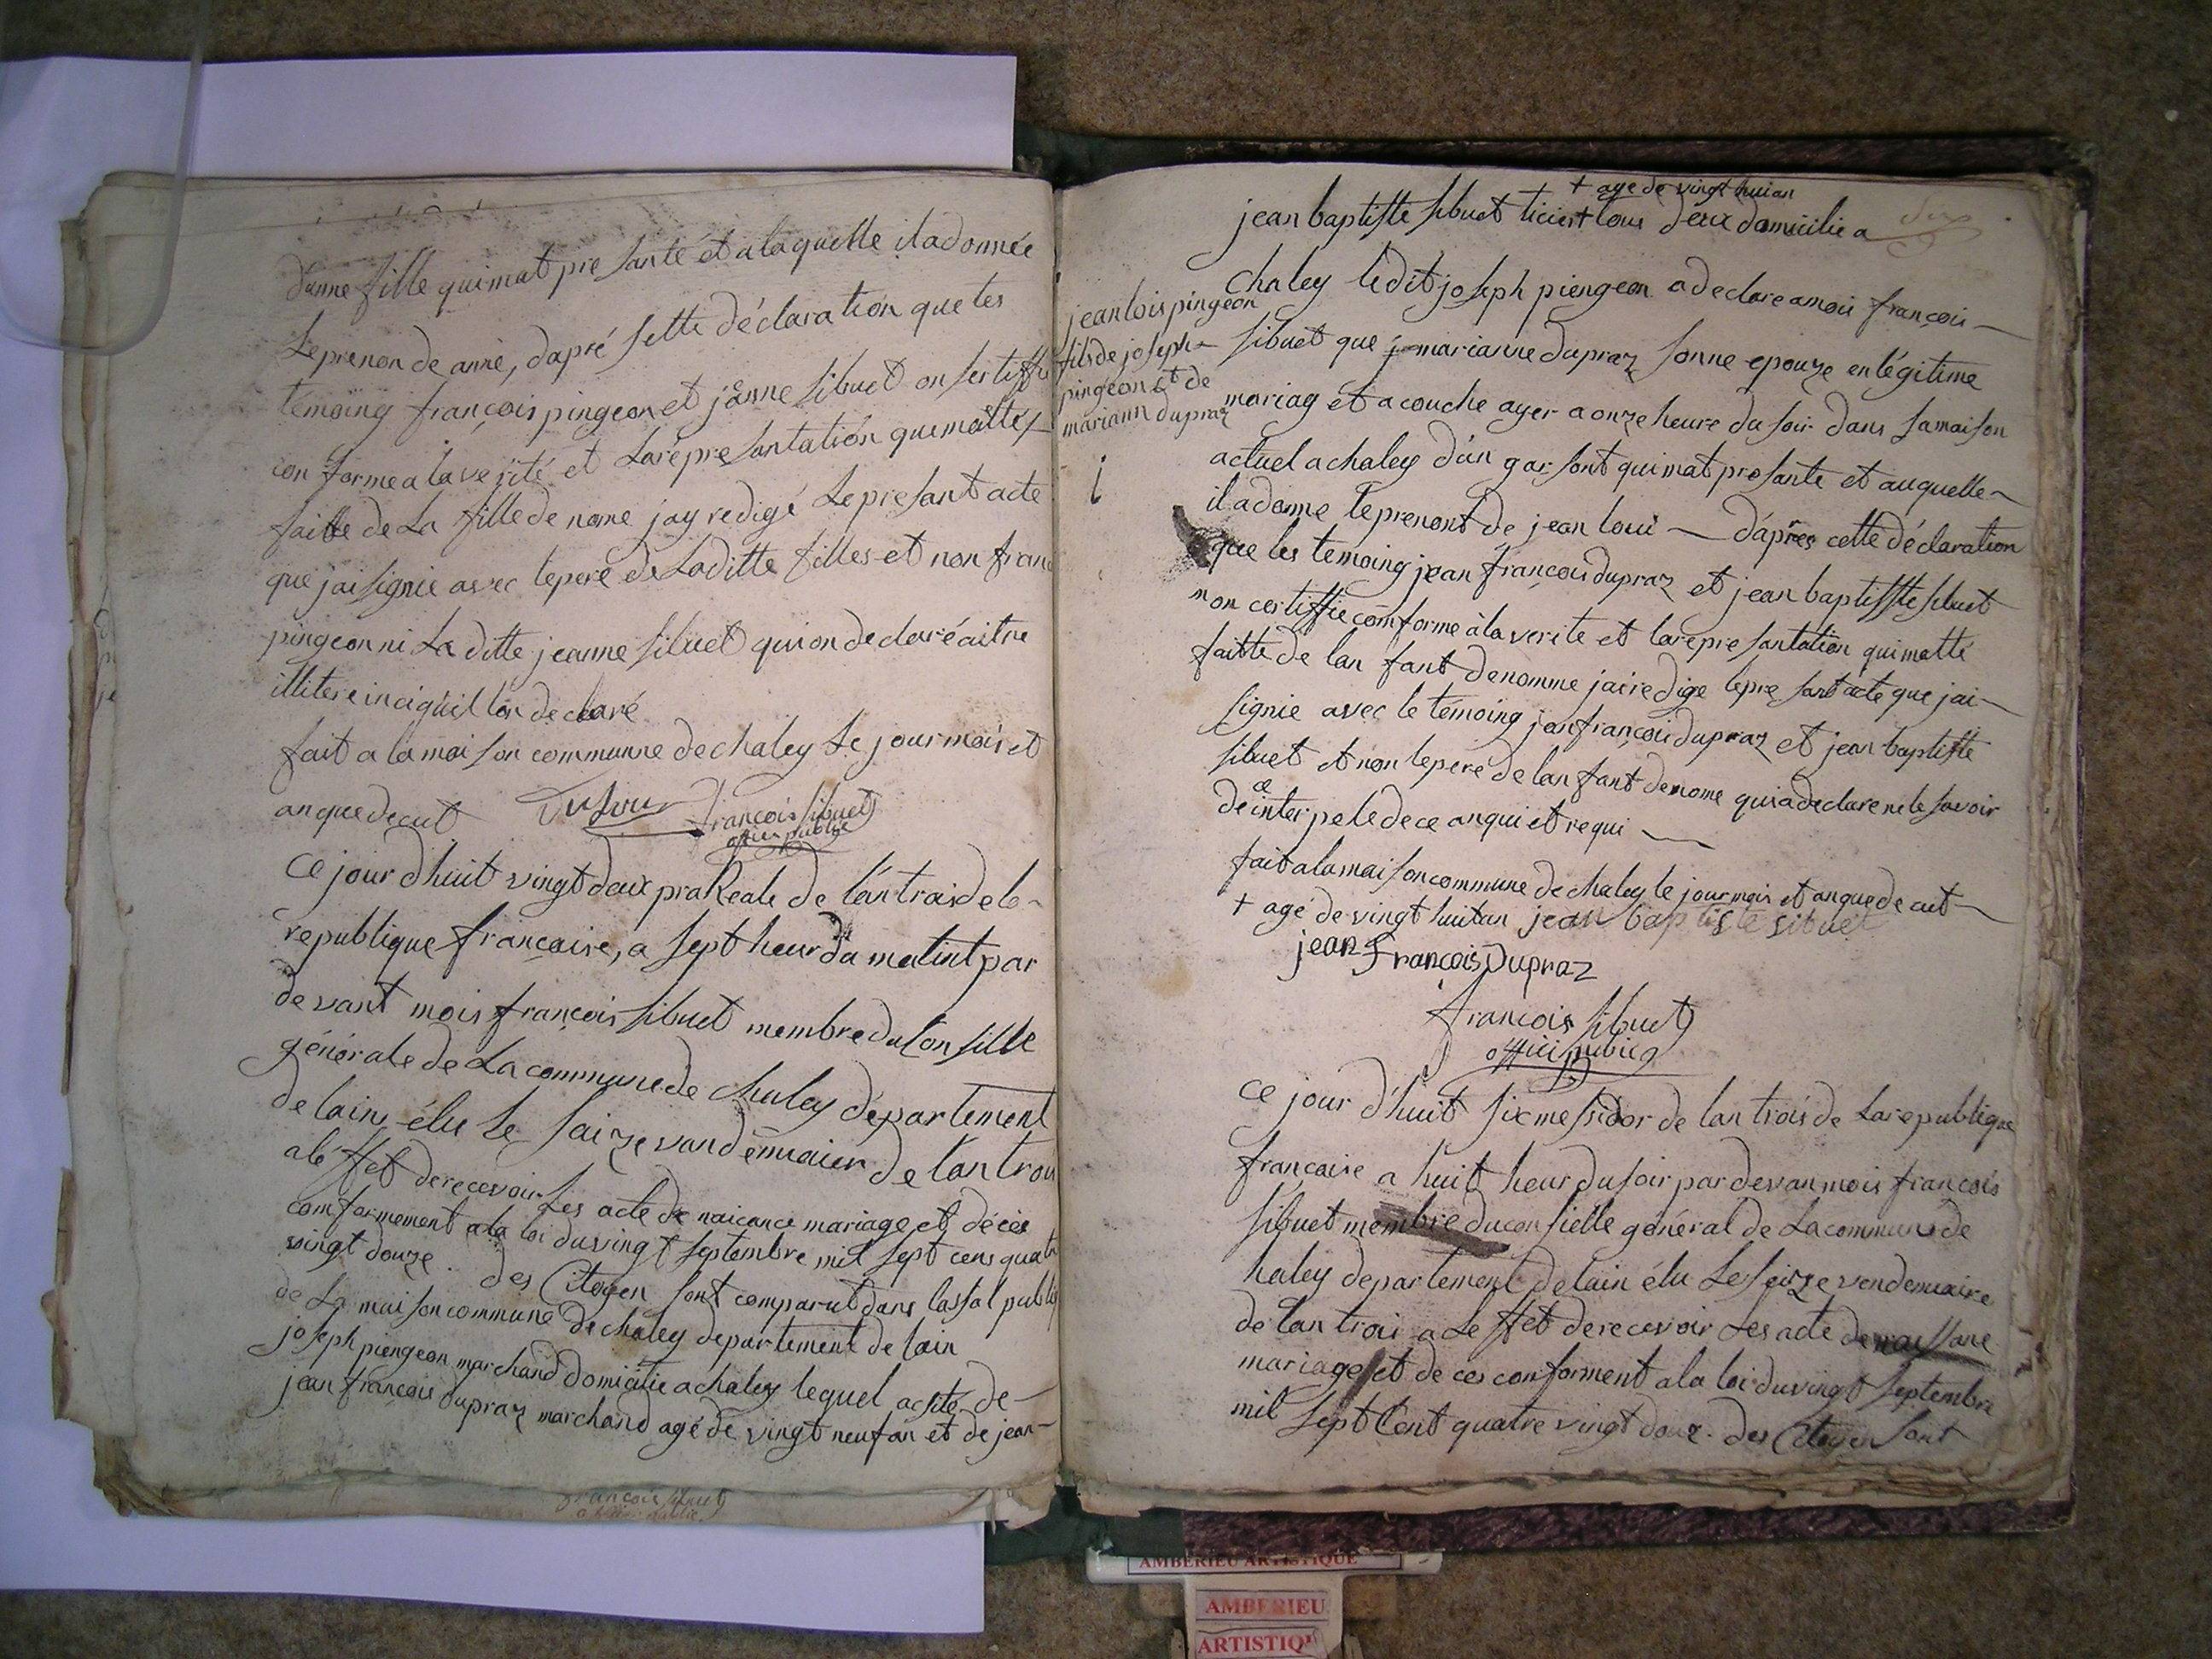 d'unne fille qui mat pre santé et a laquelle il a donnée
Le prenon de anne, dapré sette déclaration que les
témoing françois pingeon et jeanne sibuet on sertiffie
con forme a la vérité et La répre santatión qui mattés
faitte de La fille de nome jay redigé Le presant acte
que jai signie avec le pere de La ditte filles et non fran
pingeon ni La ditte jeanne sibuet qui on declaré aitre
illitere inci qüil lon declaré
fait a la mai son communne de chaley Le jour mois et
an que decut
François sibuet
officier publice
Ce jour d'huit vingt deux praReale de l'an trois de la
republique françaire, a sept heur du matint par
devant mois françois sibuet membre du Con sille
générale de La commune de Chaley département
de lain élu Le saize vandémiaier de l'an troi
a lé ffet de recevoir Les acte de naicance mariage et décès
comformement a la loi du vingt septembre mil sept cens quat
vingt douze. des Citoyen sont comparut dans la sal public
de La maison commune de chaley departement de lain
joseph piengeon marchand domicilie a chaley lequel acsité de
jean françois dupraz marchand agé de vingt neuf an et de jean
françois sibuet
+ age de vingt huian
jean baptiste sibuet + tous deux domicilie a
Chaley ledit joseph piengeon a declare a moi françois
jean lois pingeon
fils de joseph
pingeon et de
mariann dupraz
sibuet que marianne dupraz sonne epouze en légitime
mariag et a couche ayer a onze heure du soir dans sa maison
actuel a chaley d'un garsont qui mat presante et auquelle
il a donne le prenont de jean loui d'après cette déclaration
que les temoing jean françois dupraz et jean baptiste sibuet
non certiffie comforme à la verite et la repre santation qui matté
faitte de lan fant denomme jai redige le pre sant acte que jai
signie avec le témoing jan françoi dupraz et jean baptiste
sibuet et non le pere de lan fant denome qui a declare ne le savoir
de ce inter pele de ce an qui et requi
fait a la mai son commune de chaley le jour mois et an que de cut
+ agé de vingt huit an jean baptiste sibuet
jean François Dupraz
françois sibuet
officie public
Ce jour d'huit six messidor de lan trois de La republique
françaire a huit heur du soir par devan mois françois
sibuet membre du con sielle général de La commune de
haley departement de lain élu Le seize vendemiaire
de l'an troi a Le ffet de recevoir Les acte de naissane
mariage et de ces conforment a la loi du vingt septembre
mil sept Cent quatre vingt douz. des Citoyen sont
AMBERIEU ARTISTIQUE
AMBERIEU
ARTISTIQU